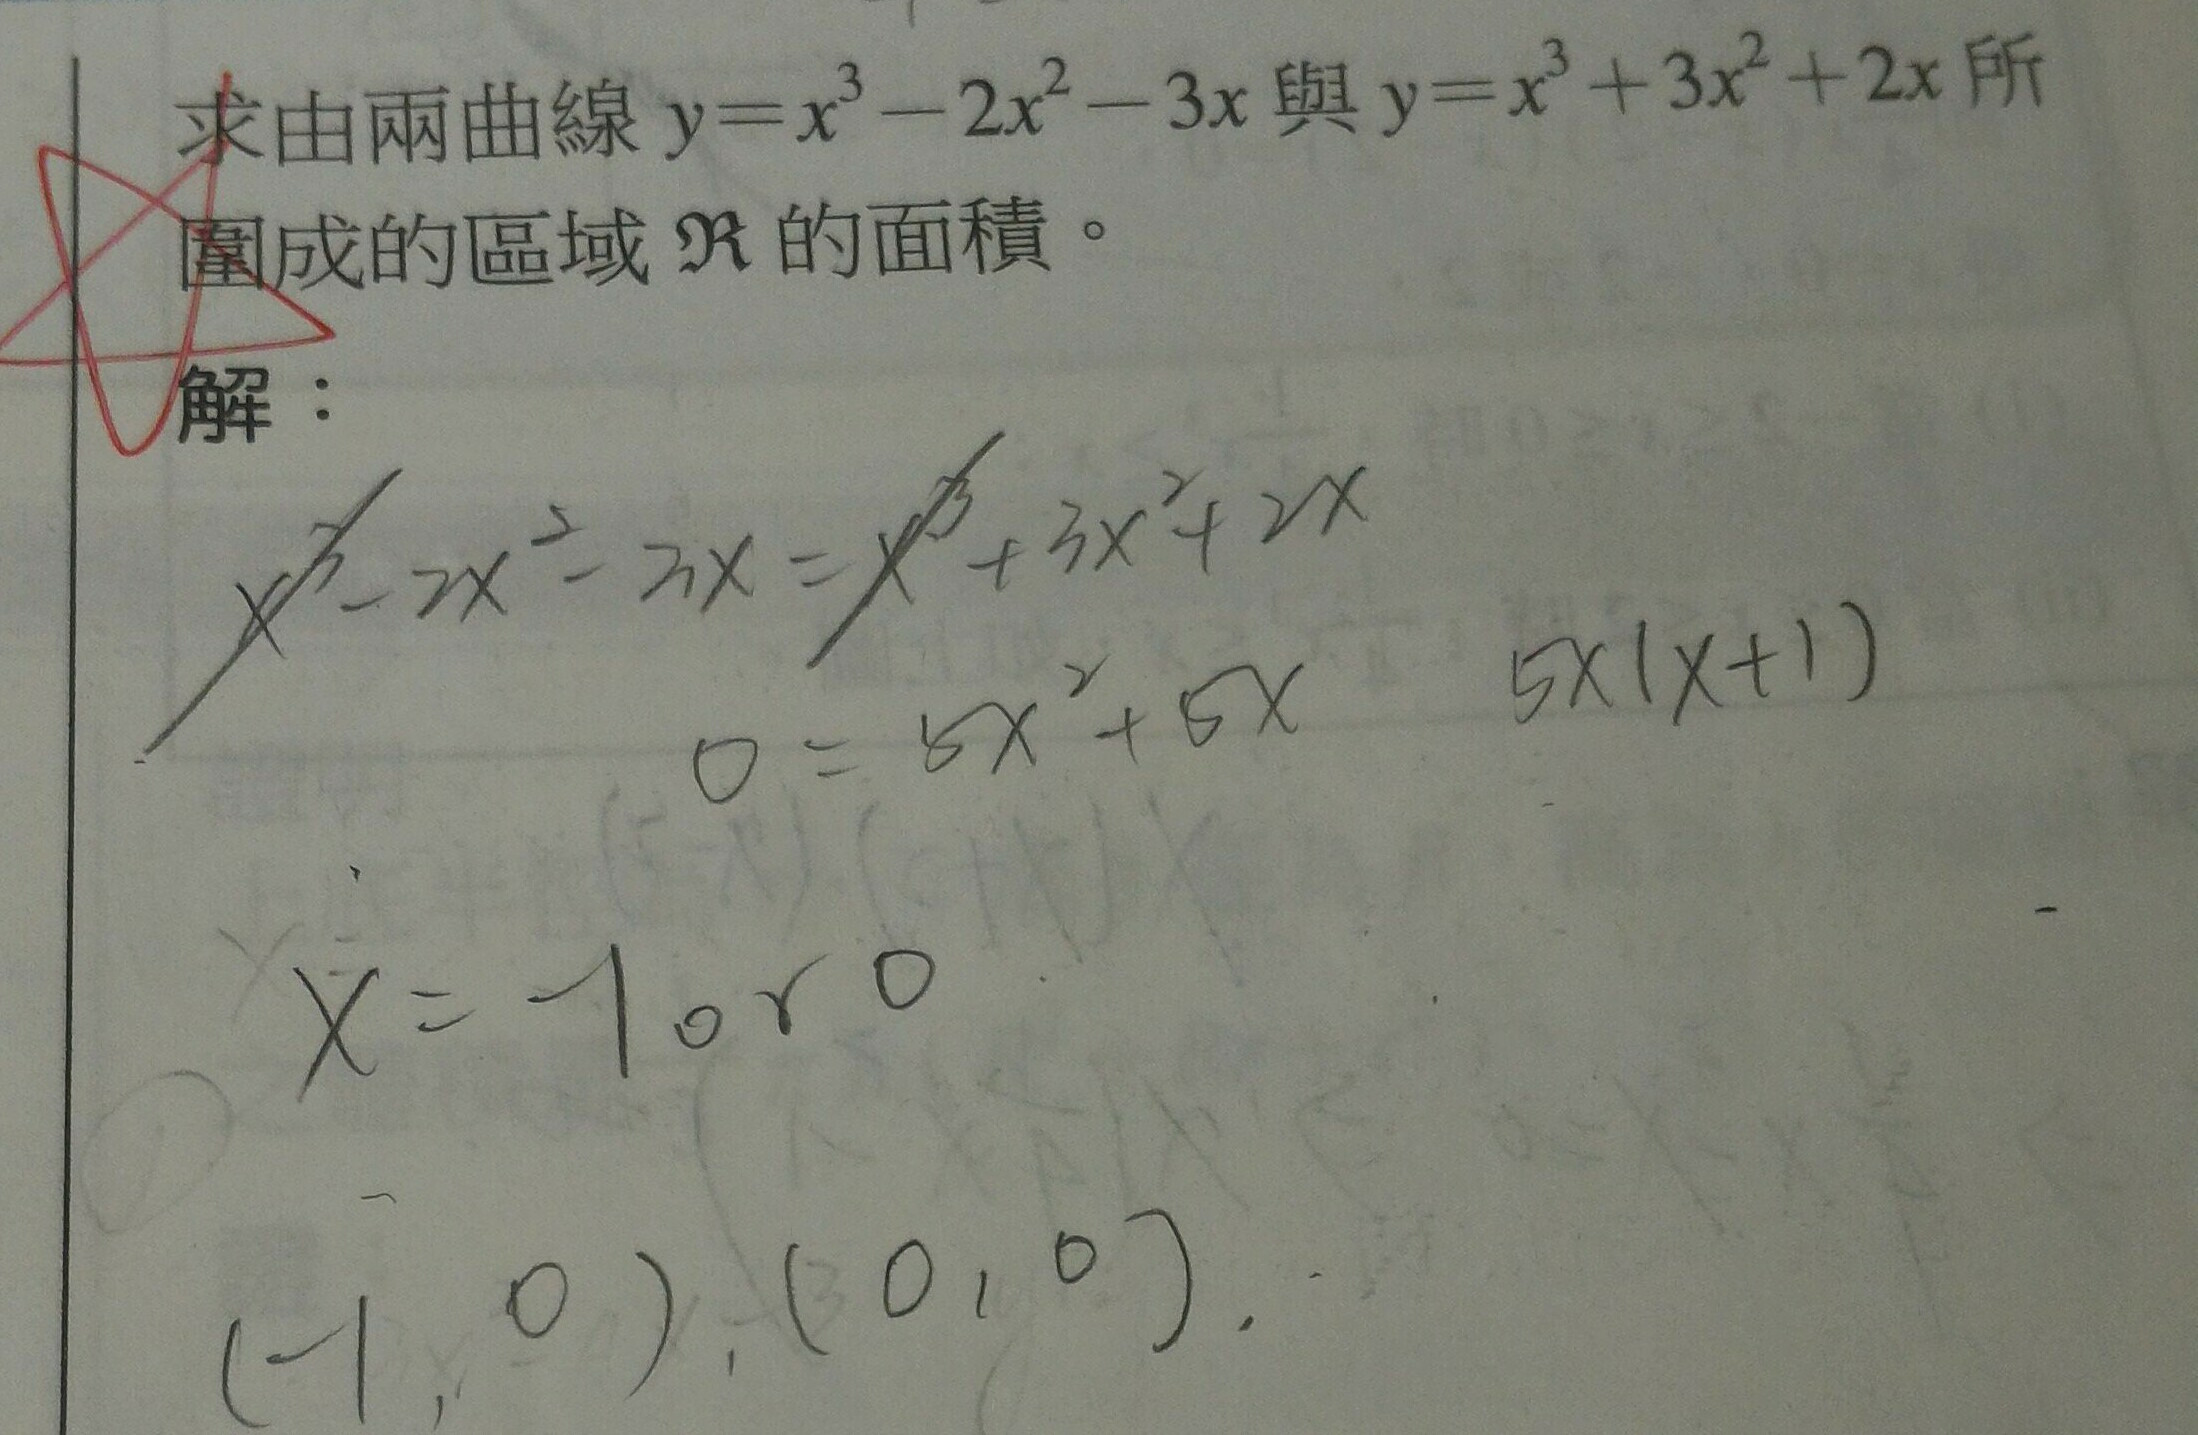 求由兩曲線 y=x³-2x²-3x 與 y=x³+3x²+2x 所
圍成的區域 ℜ 的面積。
解：
x³-2x²-3x=x³+3x²+2x
0=5x²+5x 5x(x+1)
x=-1 or 0
(-1, 0), (0, 0).